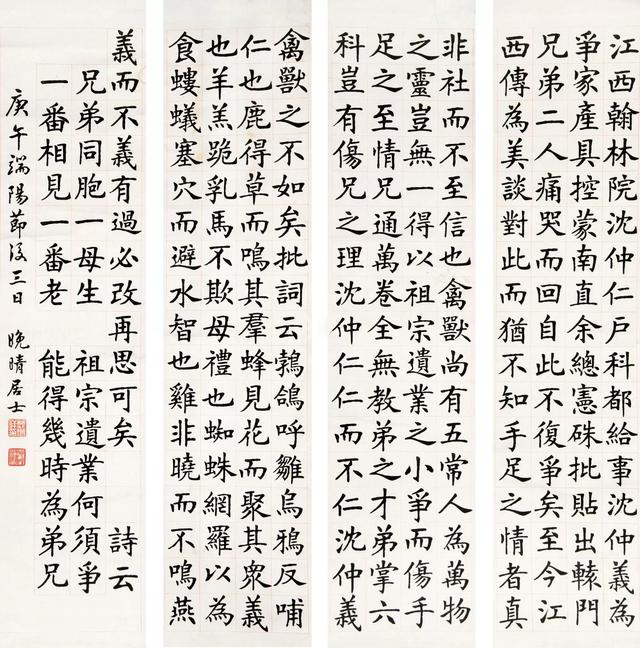 江西翰林院沈仲仁戶科都給事沈仲義為
爭家產具控蒙南直余總憲硃批貼出轅門
兄弟二人痛哭而回自此不復爭矣至今江
西傳為美談對此而猶不知手足之情者真
禽獸之不如矣批詞云鵓鴿呼雛烏鴉反哺
仁也鹿得草而鳴其羣蜂見花而聚其眾義
也羊羔跪乳馬不欺母禮也蜘蛛網羅以為
食螻蟻塞穴而避水智也雞非曉而不鳴燕
非社而不至信也禽獸尚有五常人為萬物
之靈豈無一得以祖宗遺業之小爭而傷手
足之至情兄通萬卷全無教弟之才弟掌六
科豈有傷兄之理沈仲仁仁而不仁沈仲義
義而不義有過必改再思可矣 詩云
兄弟同胞一母生 祖宗遺業何須爭
一番相見一番老 能得幾時為弟兄
庚午端陽節後三日 晚晴居士